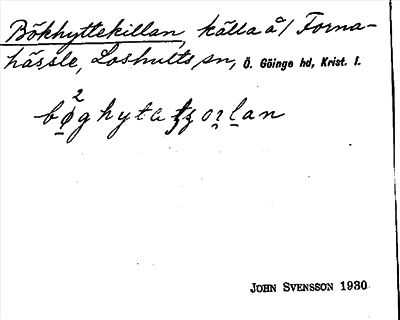 Bökhyttekillan, källa å/ Forna-
hässle, Loshults sn, Ö. Göinge hd, Krist. l.
2
JOHN SVENSSON 1930